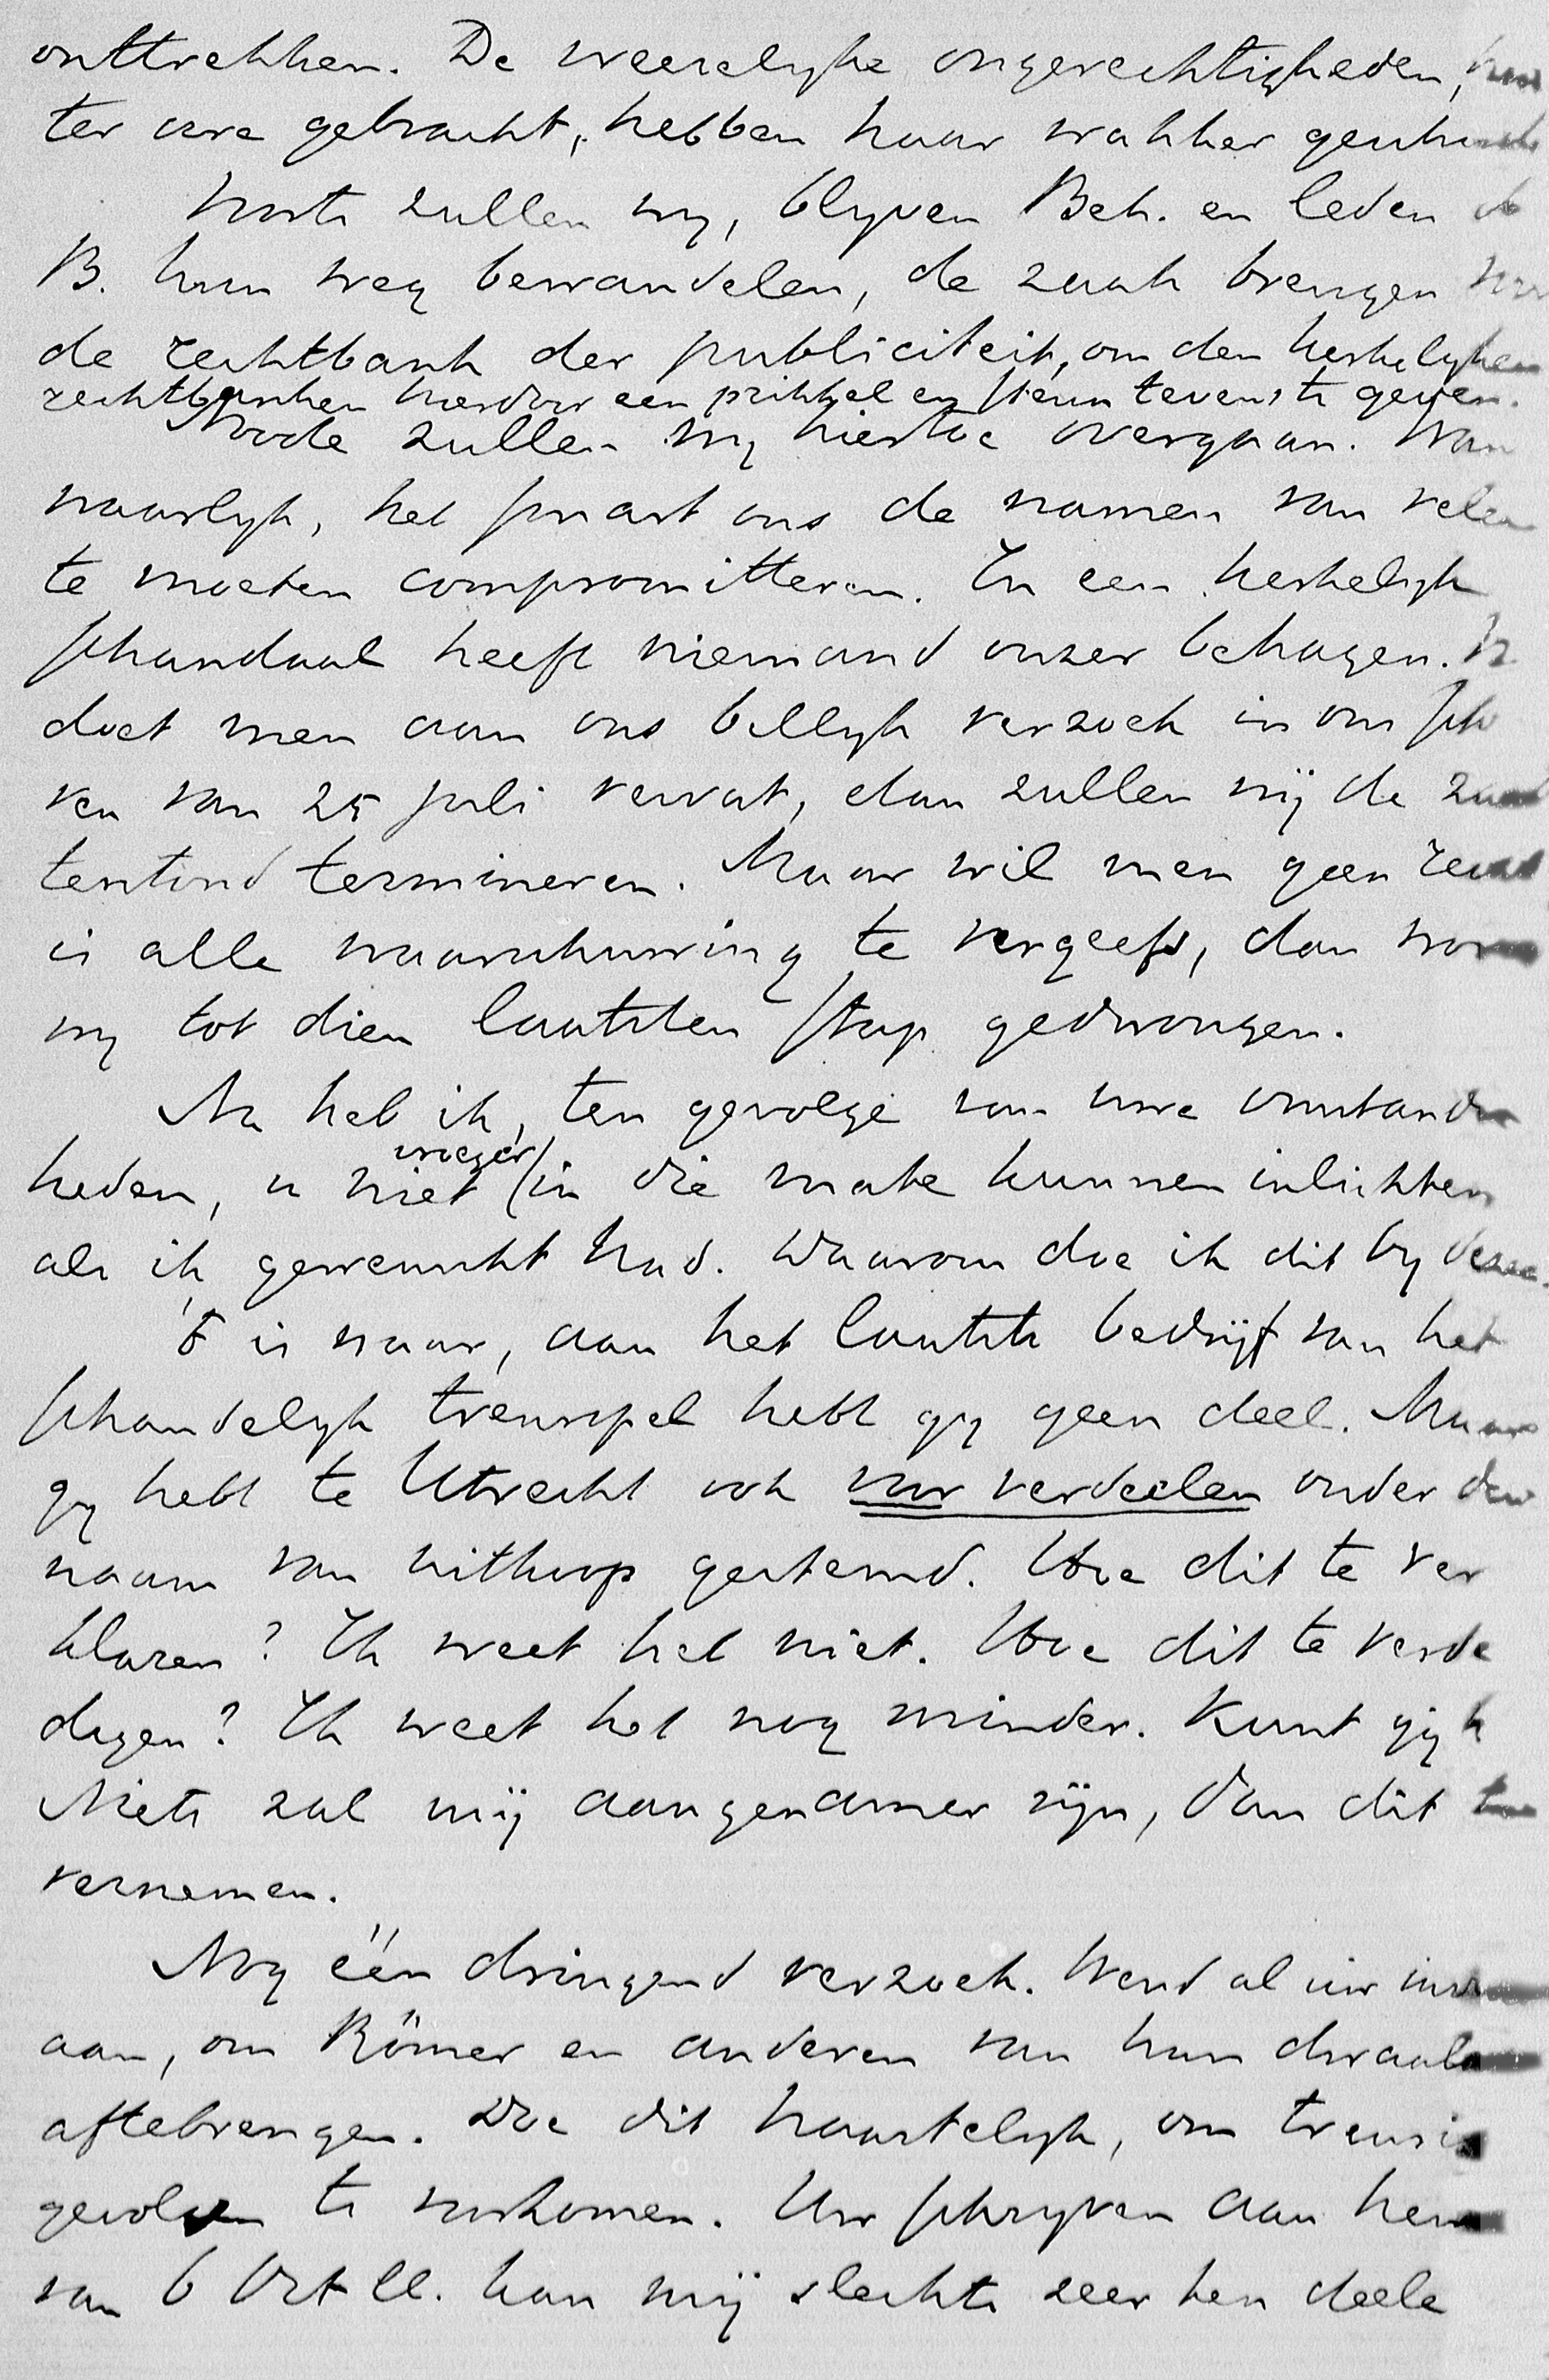 onttrekken. De vreeselyke ongerechtigheden, hun
ter oore gebracht, hebben haar wakker geschud
Korts zullen wy, blyven Beh. en leden d
B. hun weg bewandelen, de zaak brengen voor
de rechtbank der publiciteit, om den kerkelyken
rechtbanken hierdoor een prikkel en steun tevens te geven.
Noode zullen wy hiertoe overgaan. Wan
waarlyk, het smart ons de namen van velen
te moeten compromitteren. In een kerkelyk
schandaal heeft niemand onzer behagen.
doet men aan ons billyk verzoek in ons schr
ven van 25 juli vervat, dan zullen wij de zaak
terstond termineren. Maar wil men geen recht
is alle waarschuwing te vergeefs, dan wor
wy tot dien laatsten stap gedwongen.
Nu heb ik, ten gevolge van uwe omstandig
heden, u niet vroeger in die mate kunnen inlichten
als ik gewenscht had. Daarom doe ik dit by deze.
't is waar, aan het laatste bedrijf van het
schandelyk treurspel hebt gy geen deel. Maar
gy hebt te Utrecht ook voor verdeelen onder den
naam van uitkoop gestemd. Hoe dit te ver
klaren? Ik weet het niet. Hoe dit te verde
digen? Ik weet het nog minder. Kunt gij h
Niets zal mij aangenamer zijn, dan dit te
vernemen.
Nog één dringend verzoek. Wend al uw invl
aan, om Römer en anderen van hun dwaal
aftebrengen. Doe dit haastelyk, om treurig
gevolgen te voorkomen. Uw schryven aan hem
van 6 Oct ll. kan mij slechts zeer ten deele